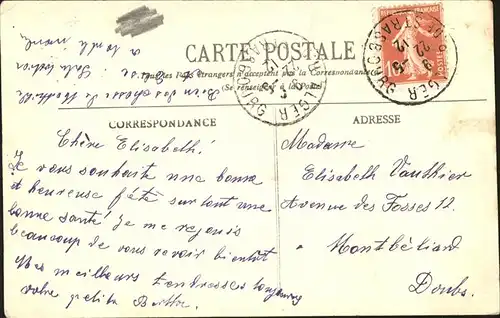 CARTE POSTALE
Tous les Pays étrangers n'acceptent pas la Correspondance
(Se renseigner à la Poste)
CORRESPONDANCE
Chère Elisabeth!
Je vous souhaite une bonne
et heureuse fête surtout une
bonne santé! Je me rejouis
beaucoup de vous revoir bientôt
Mes meilleurs tendresses toujours
votre petite Berthe.
ADRESSE
Madame
Elisabeth Vauthier
Avenue des Fosses 12.
Montbéliard
Doubs.
ALGER
STRASBOURG
ALGER
STRASBOURG
FRANÇAISE
POSTES